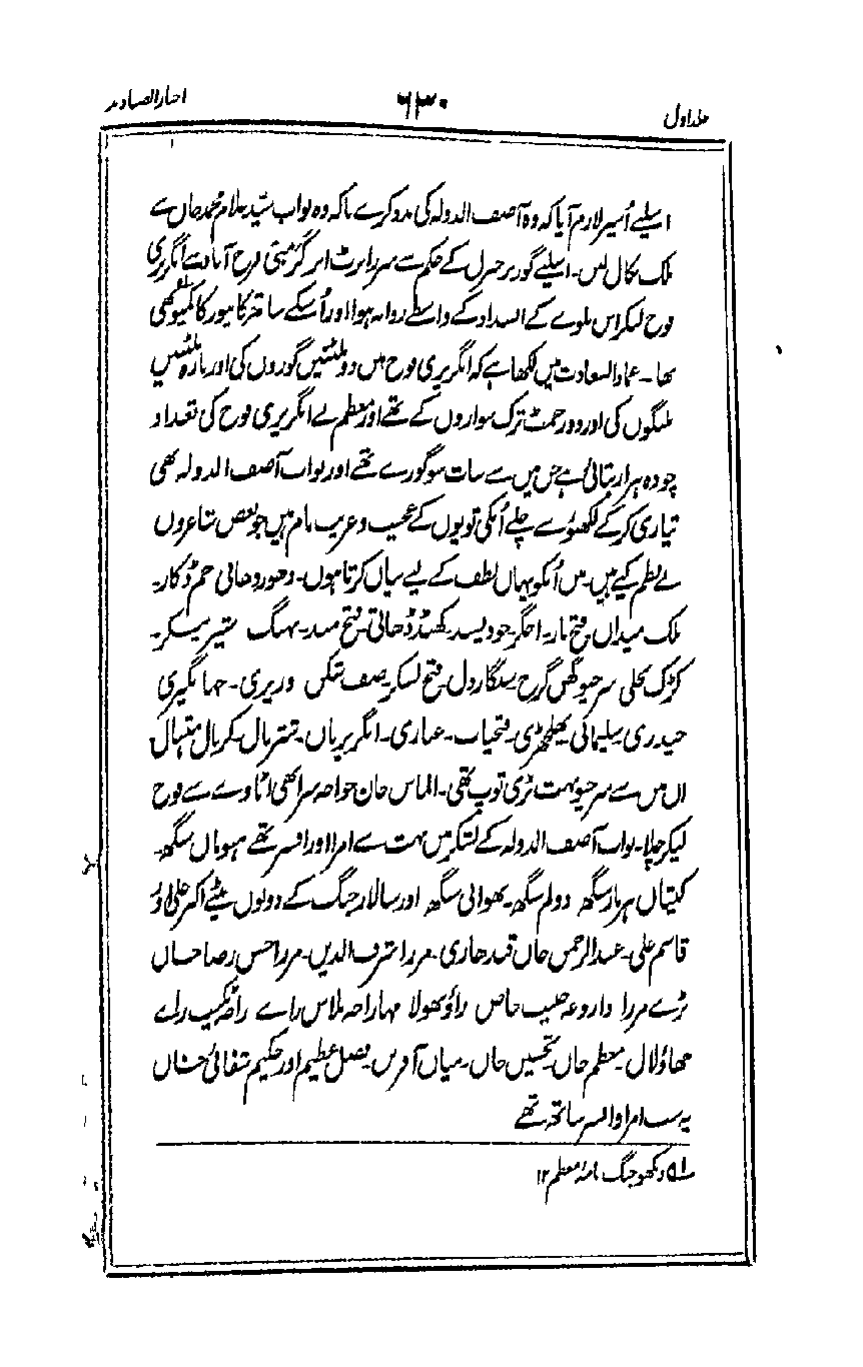 جلد اول ۶۳۰ اخبار الصنادید
اسلیے اُسپر لازم آیا کہ وہ آصف الدولہ کی مدد کرے تاکہ وہ نواب سید غلام محمد خاں سے
ملک نکال لیں۔ اسلیے گورنر جنرل کے حکم سے سر رابرٹ ابر کرمبی فرخ آباد سے انگریزی
فوج لیکر اس بلوے کے انسداد کے واسطے روانہ ہوا اور اُسکے ساتھ کانپور کا کمپو بھی
تھا۔ عماد السعادت میں لکھا ہے کہ انگریزی فوج میں دو پلٹنیں گوروں کی اور بارہ پلٹنیں
تلنگوں کی اور دو رجمٹ ترک سواروں کے تھے اور معظم نے انگریزی فوج کی تعداد
چودہ ہزار بتائی ہے جس میں سے سات سو گورے تھے اور نواب آصف الدولہ بھی
تیاری کرکے لکھنؤ سے چلے اُنکی توپوں کے عجیب و غریب نام ہیں جو بعض شاعروں
نے نظم کیے ہیں۔ میں اُنکو یہاں لطف کے لیے بیاں کرتا ہوں۔ دھور دھانی جم ڈکار۔
ملک میداں۔ فتح مار۔ اجگر۔ کھنڈ ڈھاتی۔ فتح مند۔ نہنگ
کڑک بجلی سرجیو گھن گرج۔ سنگار دل۔ فتح لشکر۔ صف شکن وزیری۔ جہانگیری
حیدری۔ سلیمانی پھلجھڑی۔ فتحیاب۔ عماری۔ انگریزیاں۔ شترنال۔ کرنال ہتنال
ان میں سے سرجیو بہت بڑی توپ تھی۔ الماس خان خواجہ سرا بھی اٹاوے سے فوج
لیکر چلا۔ نواب آصف الدولہ کے لشکر میں بہت سے امرا اور افسر تھے سوہاں سنگھ۔
کپتاں سنگھ دولم سنگھ۔ بھوانی سنگھ اور سالار جنگ کے دونوں بیٹے اکبر علی اور
قاسم علی۔ عبد الرحمن خاں قندھاری۔ مرزا شرف الدیں۔ مرزا حسن رضا خاں
بڑے مرزا داروغہ حبیب خاص راؤ بھولا مہاراجہ بلاس رائے راجہ ٹکیت رائے
جھاؤلال۔ معظم خاں۔ تحسیں خاں۔ میاں آفریں۔ فضل عظیم اور حکیم شفائی خاں
یہ سب امرا و افسر ساتھ تھے
لہ دیکھو جنگ نامہ معظم ۱۲